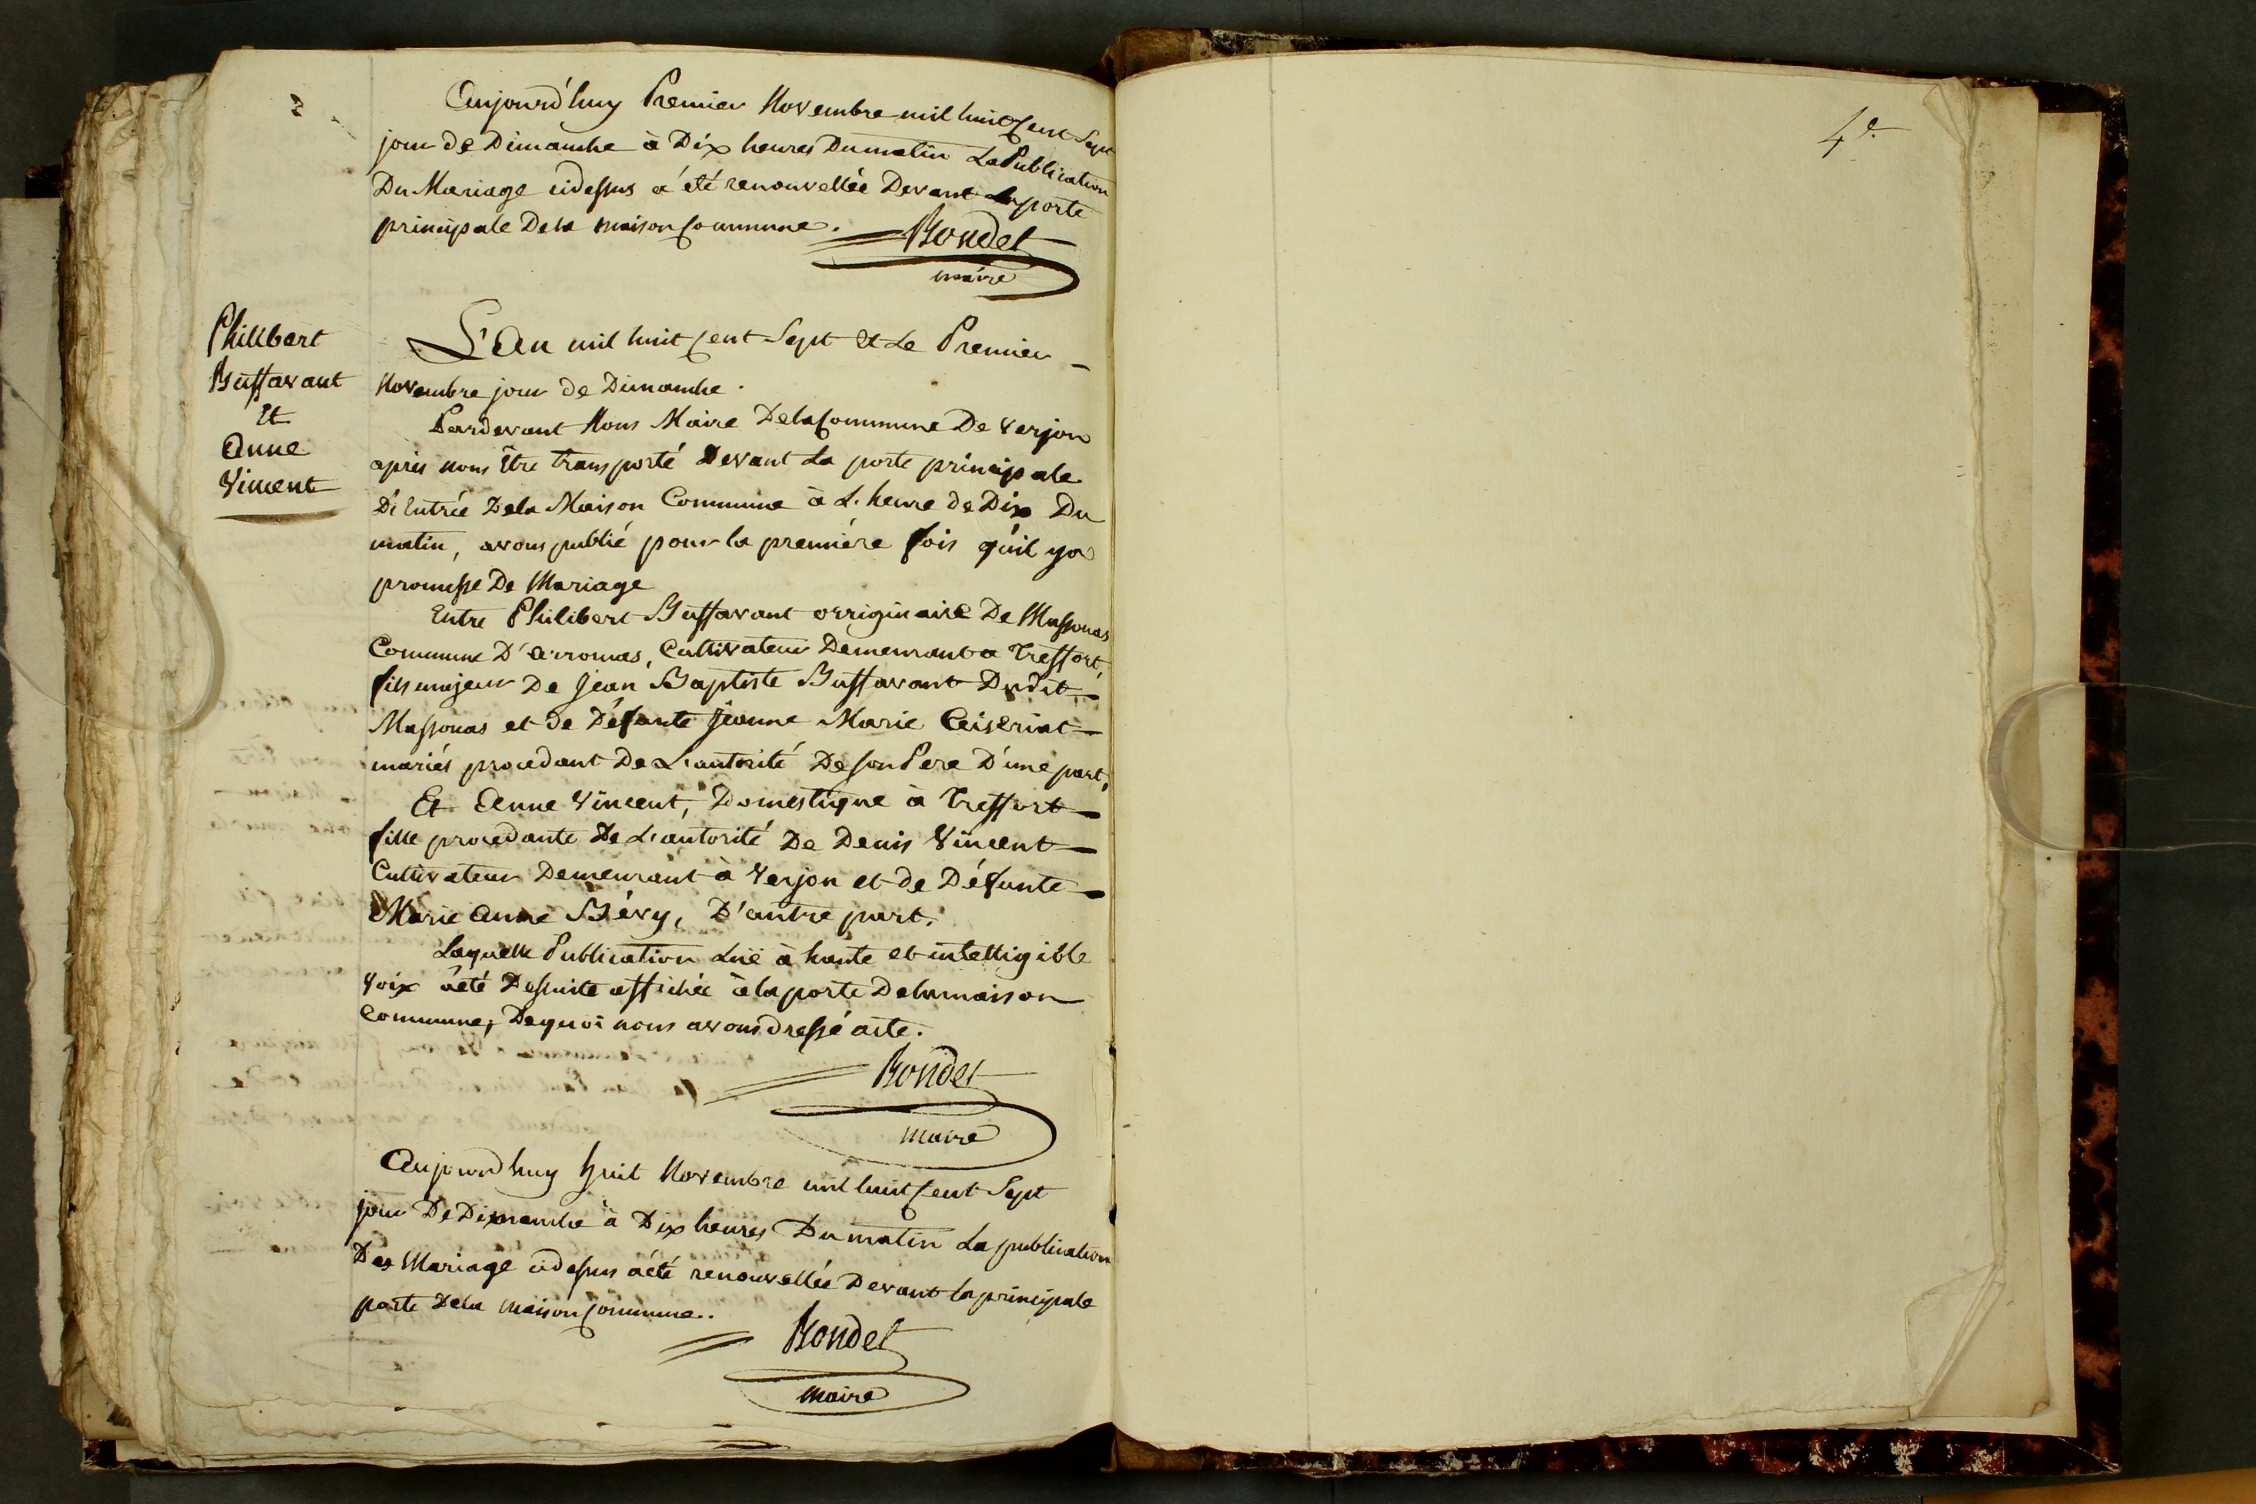 Aujourd'huy Premier Novembre mil huit Cent Sept
jour de Dimanche à Dix heures Du matin La Publication
Du Mariage cidessus a été renouvellée Devant la porte
principale De la maison Commune.
Bondet
maire
Philibert
Buffavant
Et
Anne
Vincent
L'An mil huit Cent Sept et Le Premier
Novembre jour de Dimanche.
Pardevant Nous Maire De la Commune De Verjon
après nous Être transporté Devant La porte principale
D'Entrée De la Maison Commune à L'heure de Dix Du
matin, avons publié pour la première fois qu'il ya
promesse De Mariage
Entre Philibert Buffavant origginaire De Massonas
Commune D'aromas, Cultivateur Demeurant a Treffort,
fils majeur De Jean Baptiste Buffavant Dudit
Massonas et de Défunte Jeanne Marie Ceiseriat
mariés procedant De L'autorité De son Pere D'une part,
Et Anne Vincent, Domestique à Treffort
fille procedante De L'autorité De Denis Vincent
Cultivateur Demeurant à Verjon et de Défunte
Marie Anne Bévy, D'autre part.
Laquelle Publication Luë à haute et intelligible
Voix a été Desuite affichée à la porte De la maison
Commune, De quoi nous avons dressé acte.
Bondet
maire
Aujourd huy huit Novembre mil huit Cent Sept
jour De Dimanche à Dix heures Du matin La publication
Des Mariage cidessus a été renouvellée Devant la principale
porte De la maison Commune.
Bondet
maire
4e.